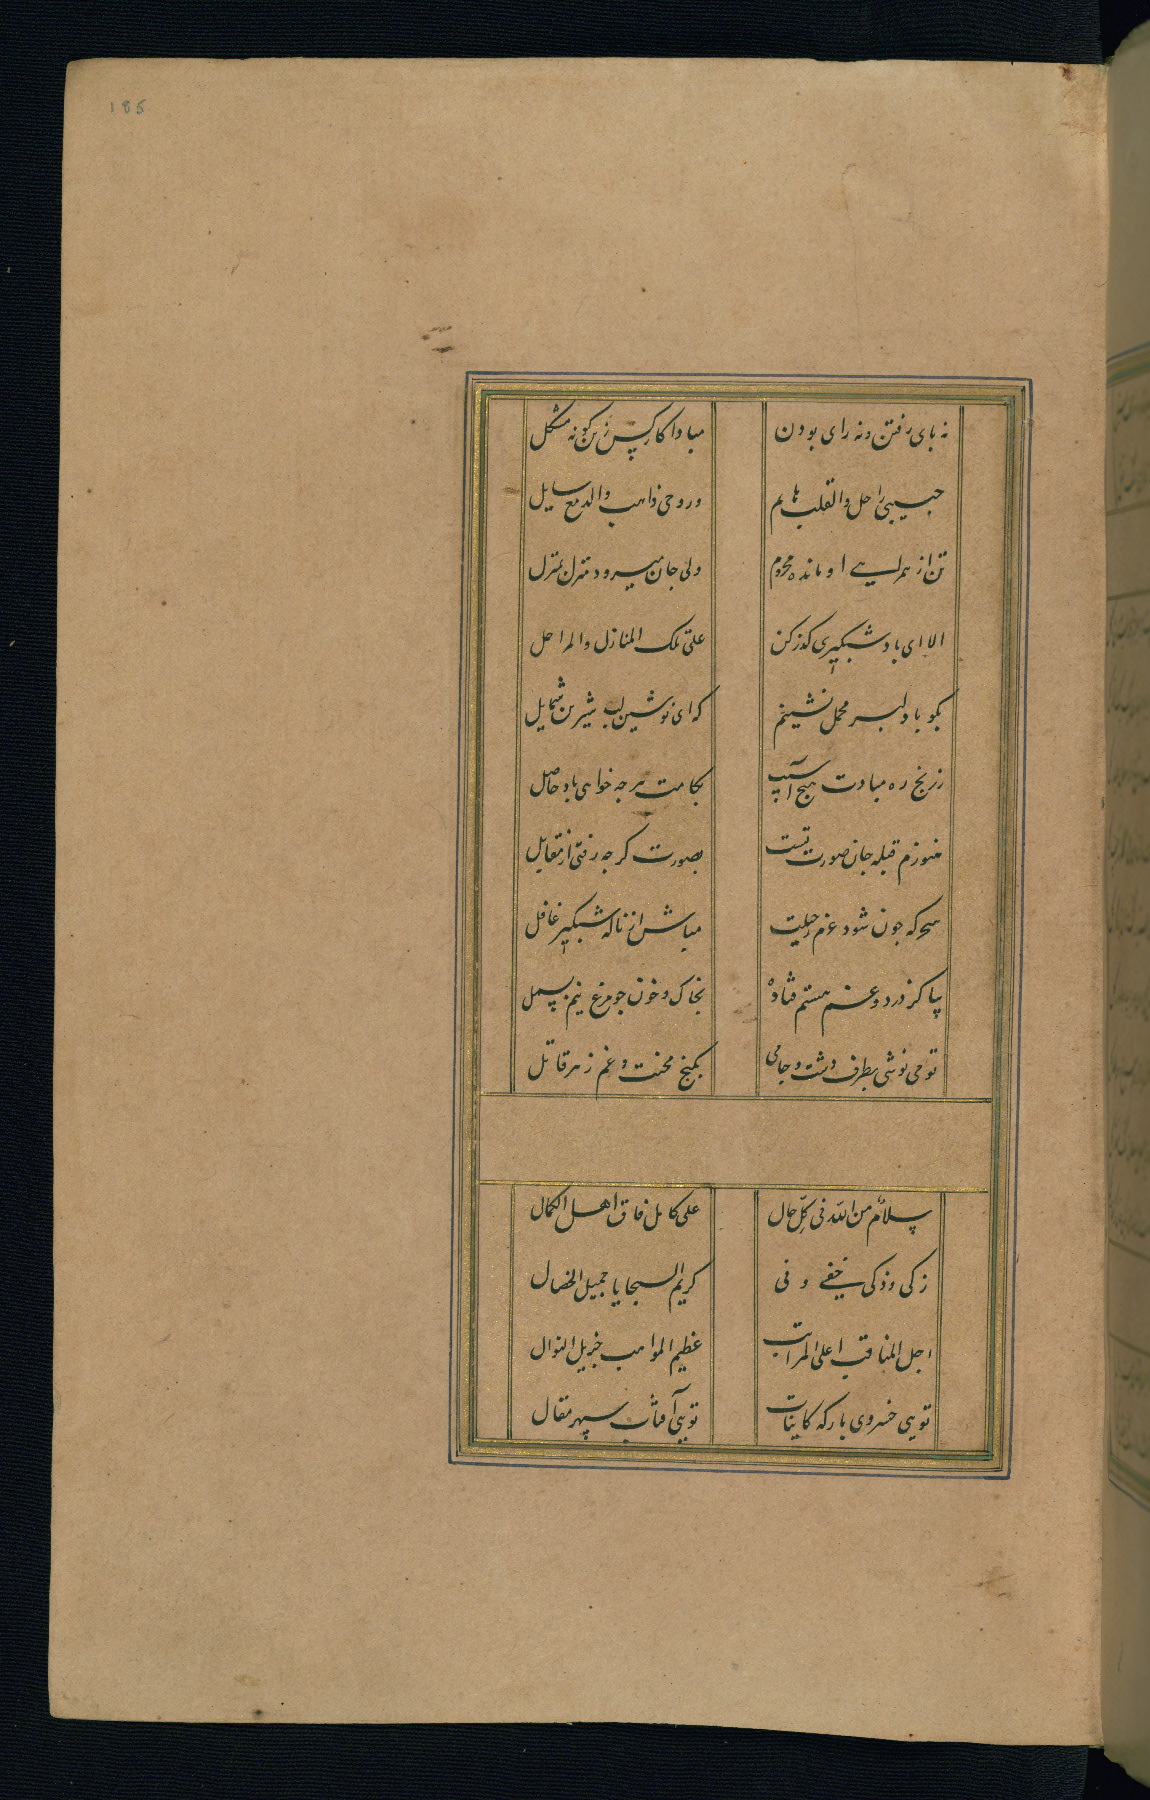 185
نه پای رفتن و نه رای بودن مبادا کار کس زین کونه مشکل
حبیبی راحل والقلب هایم و روحی ذاهب والدمع سایل
تن از همرهی او مانده محروم ولی جان میرود منزل بمنزل
الا ای باد شبکیری کذر کن علی تلک المنازل والمراحل
بکو با دلبر محمل نشینم که ای نوشین لب شیرین شمایل
ز رنج ره مبادت هیچ آسیب بکامت هرجه خواهی باد حاصل
هنوزم قبله جان صورت تست بصورت کرجه رفتی از مقابل
سحرکه جون شود عزم رحیلت مباش از ناله شبکیر غافل
بیا کز درد و غم هستم فتاده بخاک و خون جو مرغ نیم بسمل
تو می نوشی بطرف دشت و جامی بکنج محنت و غم زهر قاتل
سلام من الله فی کل حال علی کامل فاق اهل الکمال
زکی و ذکی خفی وفی کریم السجایا جمیل الخصال
اجل المناقب اعلی المراتب عظیم المواهب جزیل النوال
تویی خسروی بارکه کاینات تویی آفتاب سپهر مقال